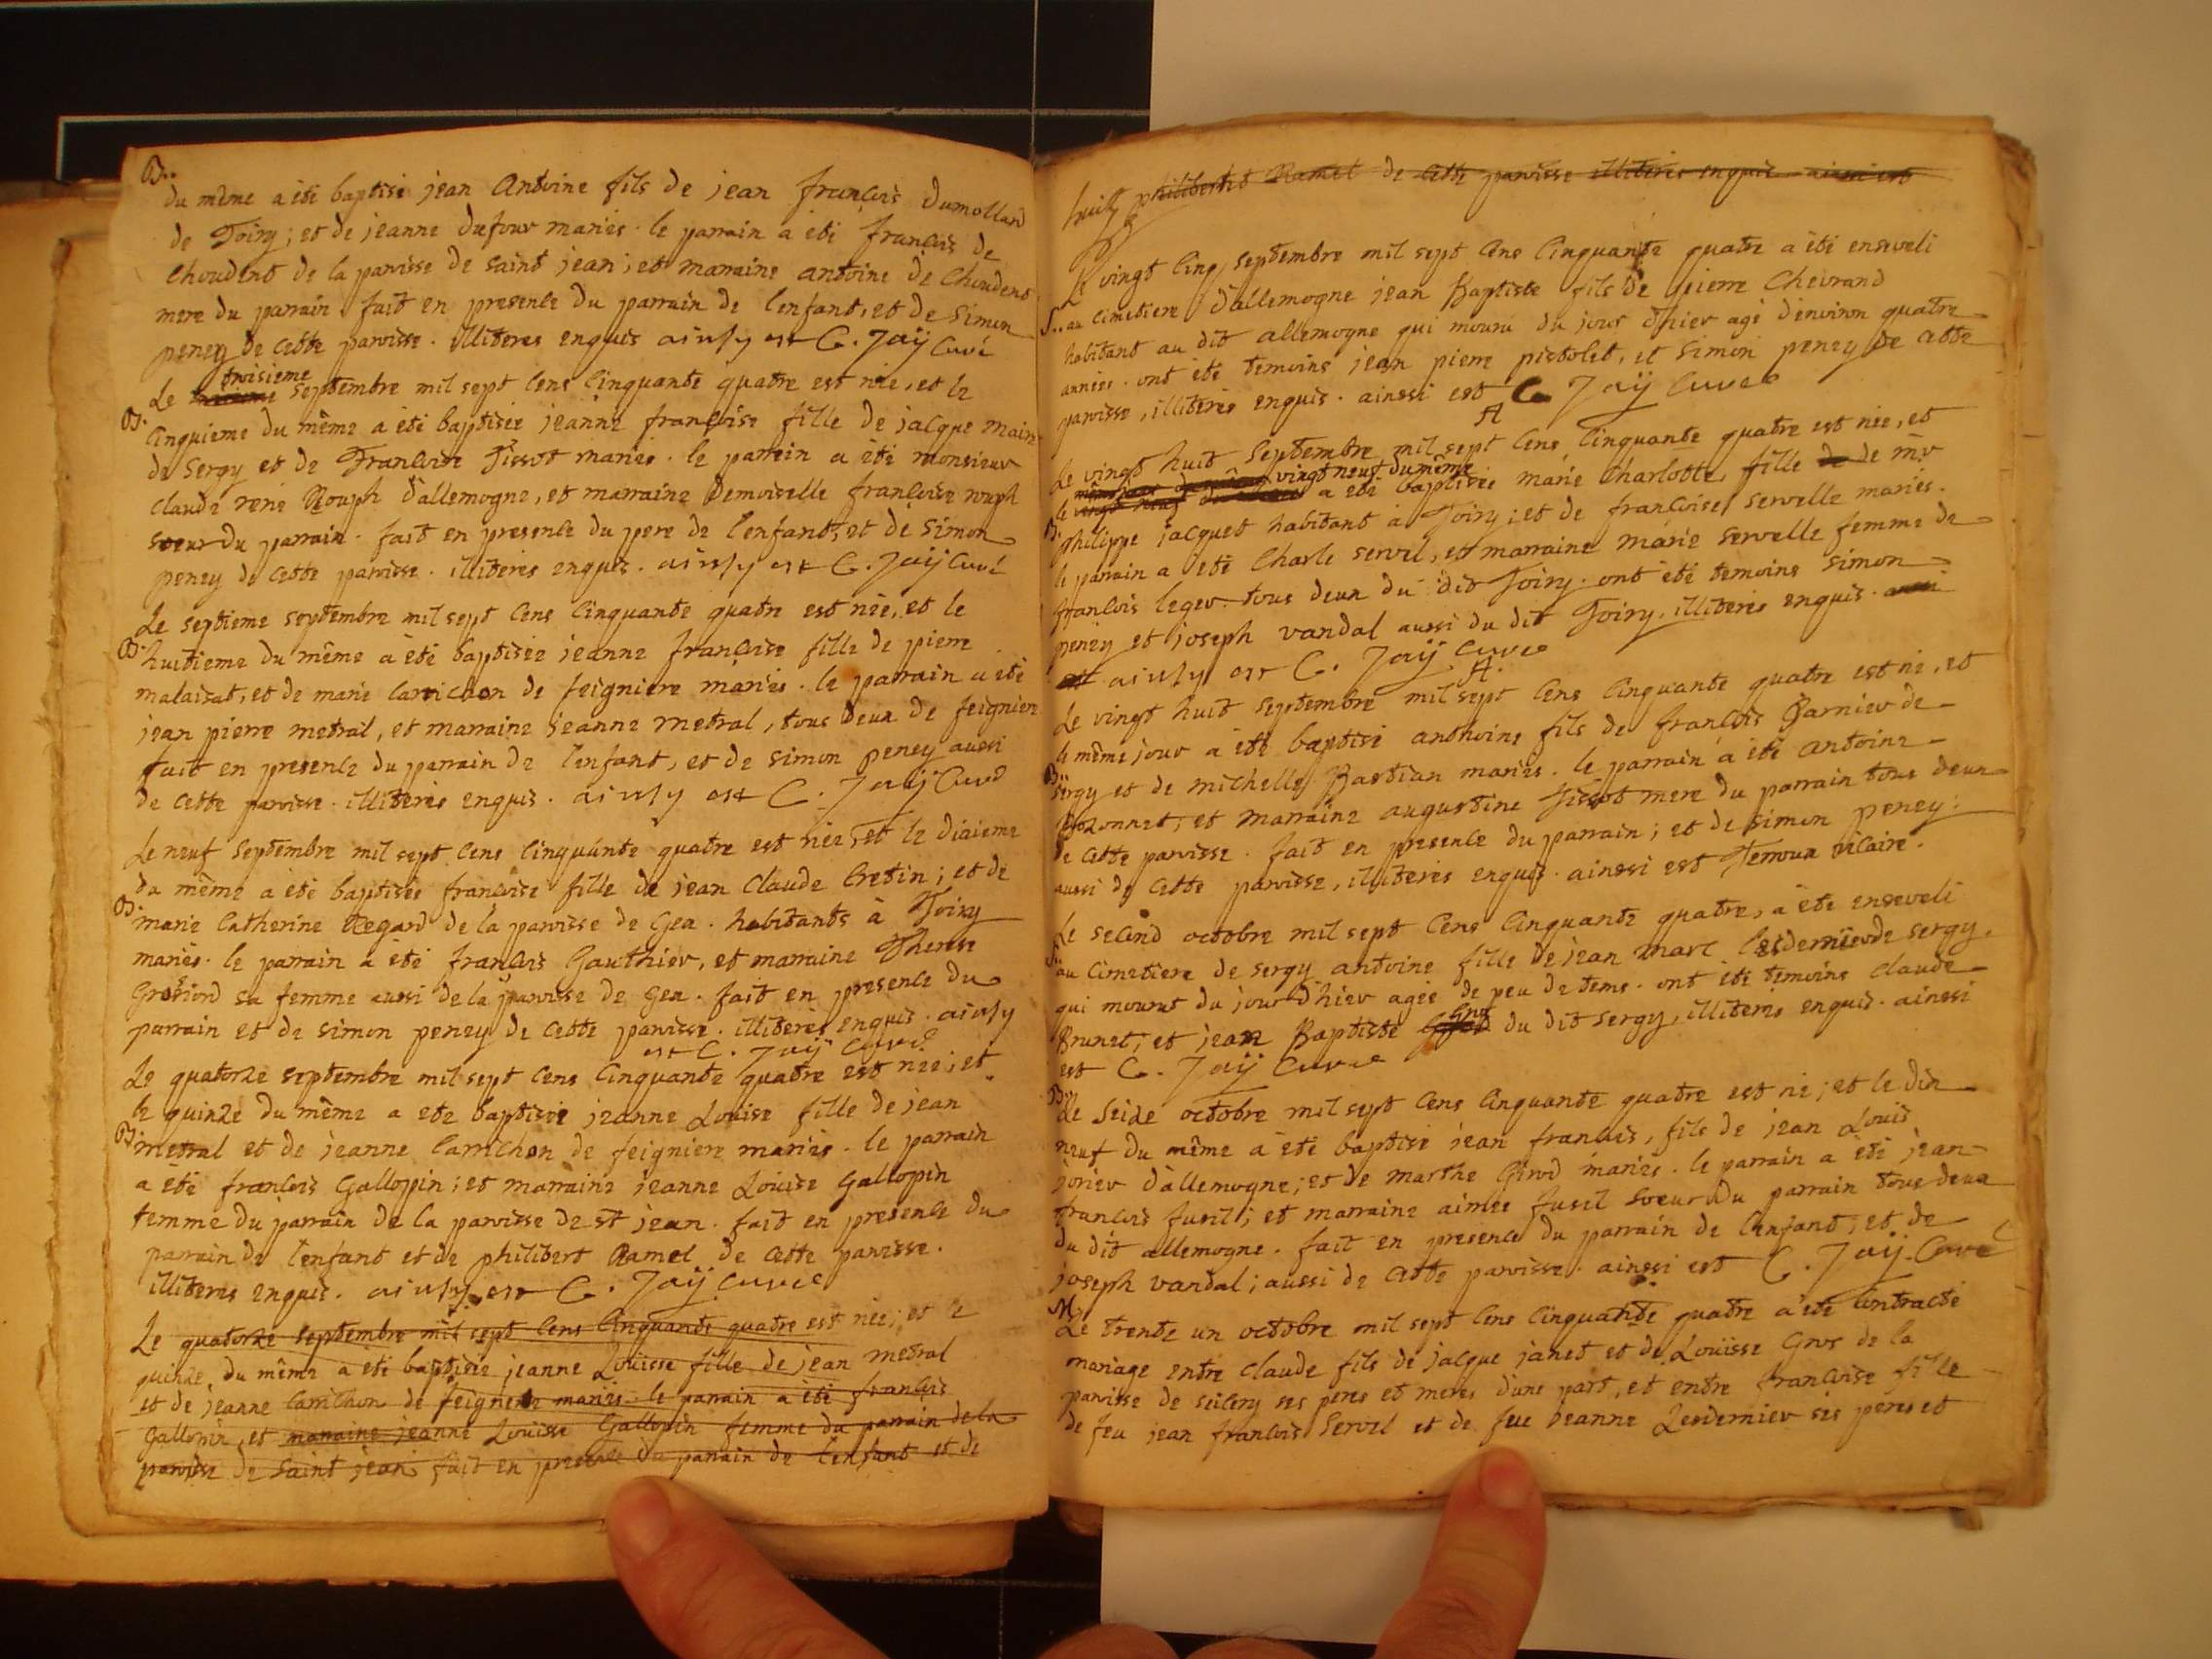 B..
du même a èti baptisé jean Antoine fils de jean francois dumollard
de Toiry; et de jeanne dufour mariés. le parrain a èti francois de
Choudens de la paroisse de saint jean; et marraine antoine de Choudens
mere du parrain fait en presence du parrain de lenfant, et de Simon
peney de cette paroisse. illiteres enquis ainsy est C. Jaÿ Curé
troisieme
Le septembre mil sept cens Cinquante quatre est née, et le
B. Cinquieme du même a èti baptisée jeanne francoise fille de jacque
de Sergy et de Francoise Tissot mariés. le parrein a èti monsieur
claude rené Rouph dallemogne, et marraine demoiselle francoise rouph
soeur du parrain. fait en presence du pere de lenfant, et de Simon
peney de cette paroisse. illiteres enquis. ainsy est C. Jaÿ Curé
Le septieme septembre mil sept cens Cinquante quatre est née, et le
B. huitieme du même a èti baptisée jeanne francoise fille de pierre
malaizat, et de marie carrichon de feigniere mariés. le parrain a èti
jean pierre metral, et marraine jeanne metral, tous deux de feigniere
fait en presence du parrain de lenfant, et de simon peney aussi
de cette paroisse. illiteres enquis. ainsy est C. Jaÿ Curé
Le neuf septembre mil sept cens Cinquante quatre est née, et le dixieme
du même a èti baptisée francoise fille de jean claude Cretin; et de
B. marie Catherine Regard de la paroisse de Gex. habitants à Toiry
mariés. le parrain a èti francois Gauthier, et marraine Therese
Grosfiord sa femme aussi de la paroisse de gex. fait en presence du
parrain et de simon peney de cette paroisse. illiteres enquis. ainsy
est C. Jaÿ Curé
Le quatorze septembre mil sept cens Cinquante quatre est née; et
le quinze du même a ete baptisée jeanne Louise fille de jean
B. metral et de jeanne Carrichon de feigniere mariés. le parrain
a èti francois Gallopin; et marraine jeanne Louise Gallopin
femme du parrain de la paroisse de st jean. fait en presence du
parrain de lenfant et de philibert Ramel de cette paroisse.
illiteres enquis. ainsy est C. Jaÿ Curé
Le quatorze septembre mil sept cens Cinquante quatre est née; et le
quinze du même a èti baptisée jeanne Louisse fille de jean metral
et de jeanne Carrichon de feigniere mariés. le parrain a èti francois
Gallopin, et marraine jeanne Louisse Gallopin femme du parrain de la
paroisse de saint jean fait en presence du parrain de lenfant et de
philibertet Ramel de cette paroisse illiteres enquis ainsi est
Le vingt Cinq septembre mil sept cens Cinquante quatre a èti enseveli
S.. au Cimetiere dallemogne jean Baptiste fils de pierre Chevrand
habitant au dit allemogne qui mouru du jour dhier agé denviron quatre
années. ont èté temoins jean pierre pictolet, et Simon peney de cette
paroisse, illiteres enquis. ainssi est C. Jaÿ Curé
A
Le vingt huit Septembre mil sept cens Cinquante quatre est née, et
vingt neuf du même
le a èti baptisée marie Charlotte, fille de mr
B. philippe jacquet habitant à Toiry; et de francoise servelle mariés.
le parrain a èté Charle servel, et marraine marie servelle femme de
francois leger tous deux du dit Toiry. ont èté temoins simon
peney et joseph vandal aussi du dit Toiry. illiteres enquis.
ainsy est C. Jaÿ Curé
A.
Le vingt huit septembre mil sept cens Cinquante quatre est né, et
le même jour a èté baptisé anthoine fils de francois Garnier de
B. sergy et de michelle Bastian mariés. le parrain a èti antoine
et marraine augustine Tissot mere du parrain tous deux
de cette paroisse. fait en presence du parrain; et de simon peney
aussi de cette paroisse, illiteres enquis. ainssi est Temoux vicaire.
Le second octobre mil sept cens Cinquante quatre, a èté enseveli
S.. au Cimetiere de sergy antoine fille de jean marc Lesdernier de sergy.
qui mourut du jour dhier agée de peu de tems. ont èté temoins claude
Gros
Brunet, et jean Baptiste du dit sergy, illiteres enquis. ainssi
est C. Jaÿ Curé
B. Le seize octobre mil sept cens Cinquante quatre est né; et le dix
neuf du même a èté baptisé jean francois, fils de jean Louis
dallemogne; et de marthe Girod mariés. le parrain a èti jean
francois fusil; et marraine aimée fusil soeur du parrain tous deux
du dit allemogne. fait en presence du parrain de lenfant; et de
joseph vandal; aussi de cette paroisse. ainssi est C. Jaÿ Curé
M.
Le trente un octobre mil sept cens Cinquante quatre a èté Contracté
mariage entre claude fils de jacque janet et de Louisse Gros de la
paroisse de ses peres et meres dune part, et entre francoise fille
de feu jean francois Servel et de feue jeanne Lesdernier ses peres et